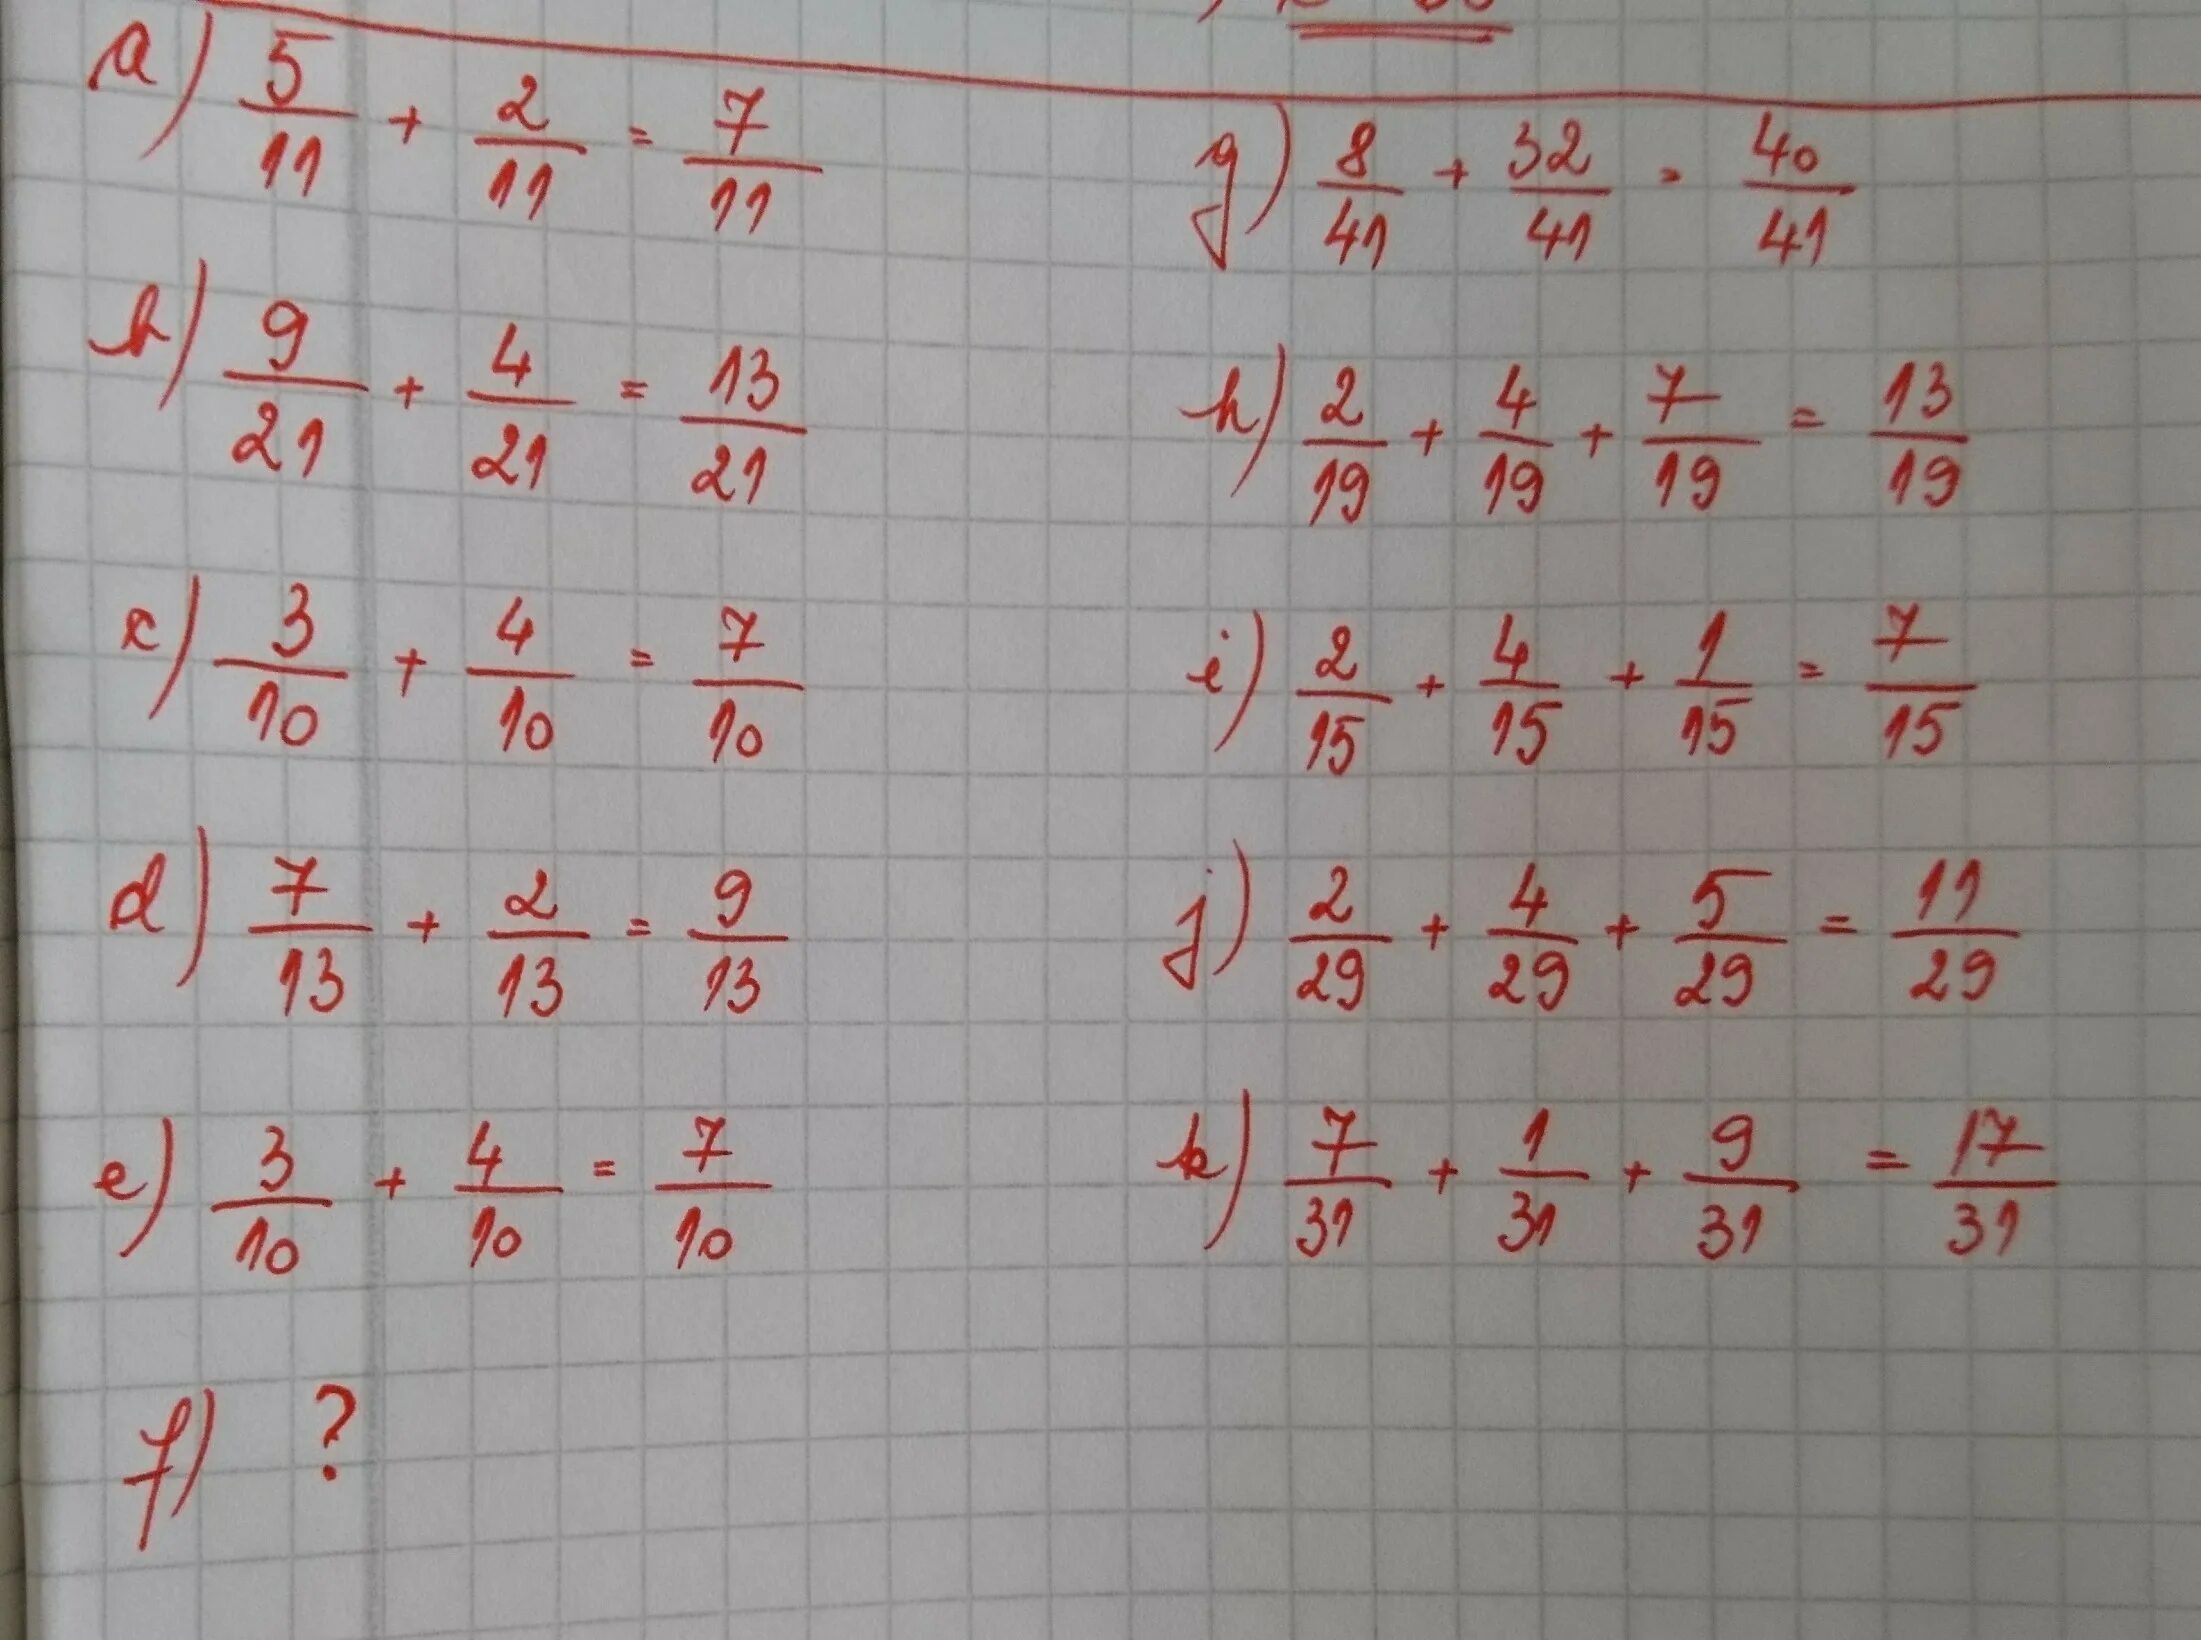 a) 5/11 + 2/11 = 7/11
b) 9/21 + 4/21 = 13/21
c) 3/10 + 4/10 = 7/10
d) 7/13 + 2/13 = 9/13
e) 3/10 + 4/10 = 7/10
f) ?
g) 8/41 + 32/41 = 40/41
h) 2/19 + 4/19 + 7/19 = 13/19
i) 2/15 + 4/15 + 1/15 = 7/15
j) 2/29 + 4/29 + 5/29 = 11/29
k) 7/31 + 1/31 + 9/31 = 17/31